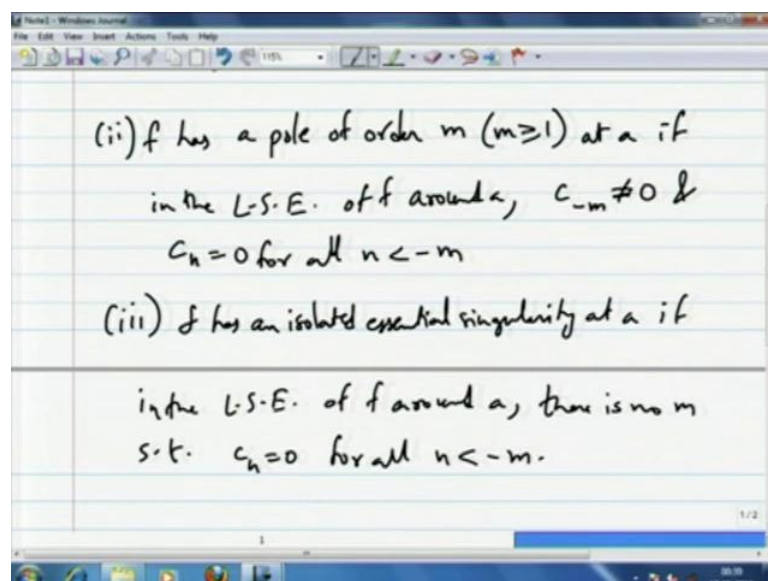 Note1 - Windows Journal
File Edit View Insert Actions Tools Help
115%
(ii) f has a pole of order m (m≥1) at a if
in the L.S.E. of f around a, C₋ₘ ≠ 0 &
Cₙ = 0 for all n < -m
(iii) f has an isolated essential singularity at a if
in the L.S.E. of f around a, there is no m
s.t. Cₙ = 0 for all n < -m.
1/2
1